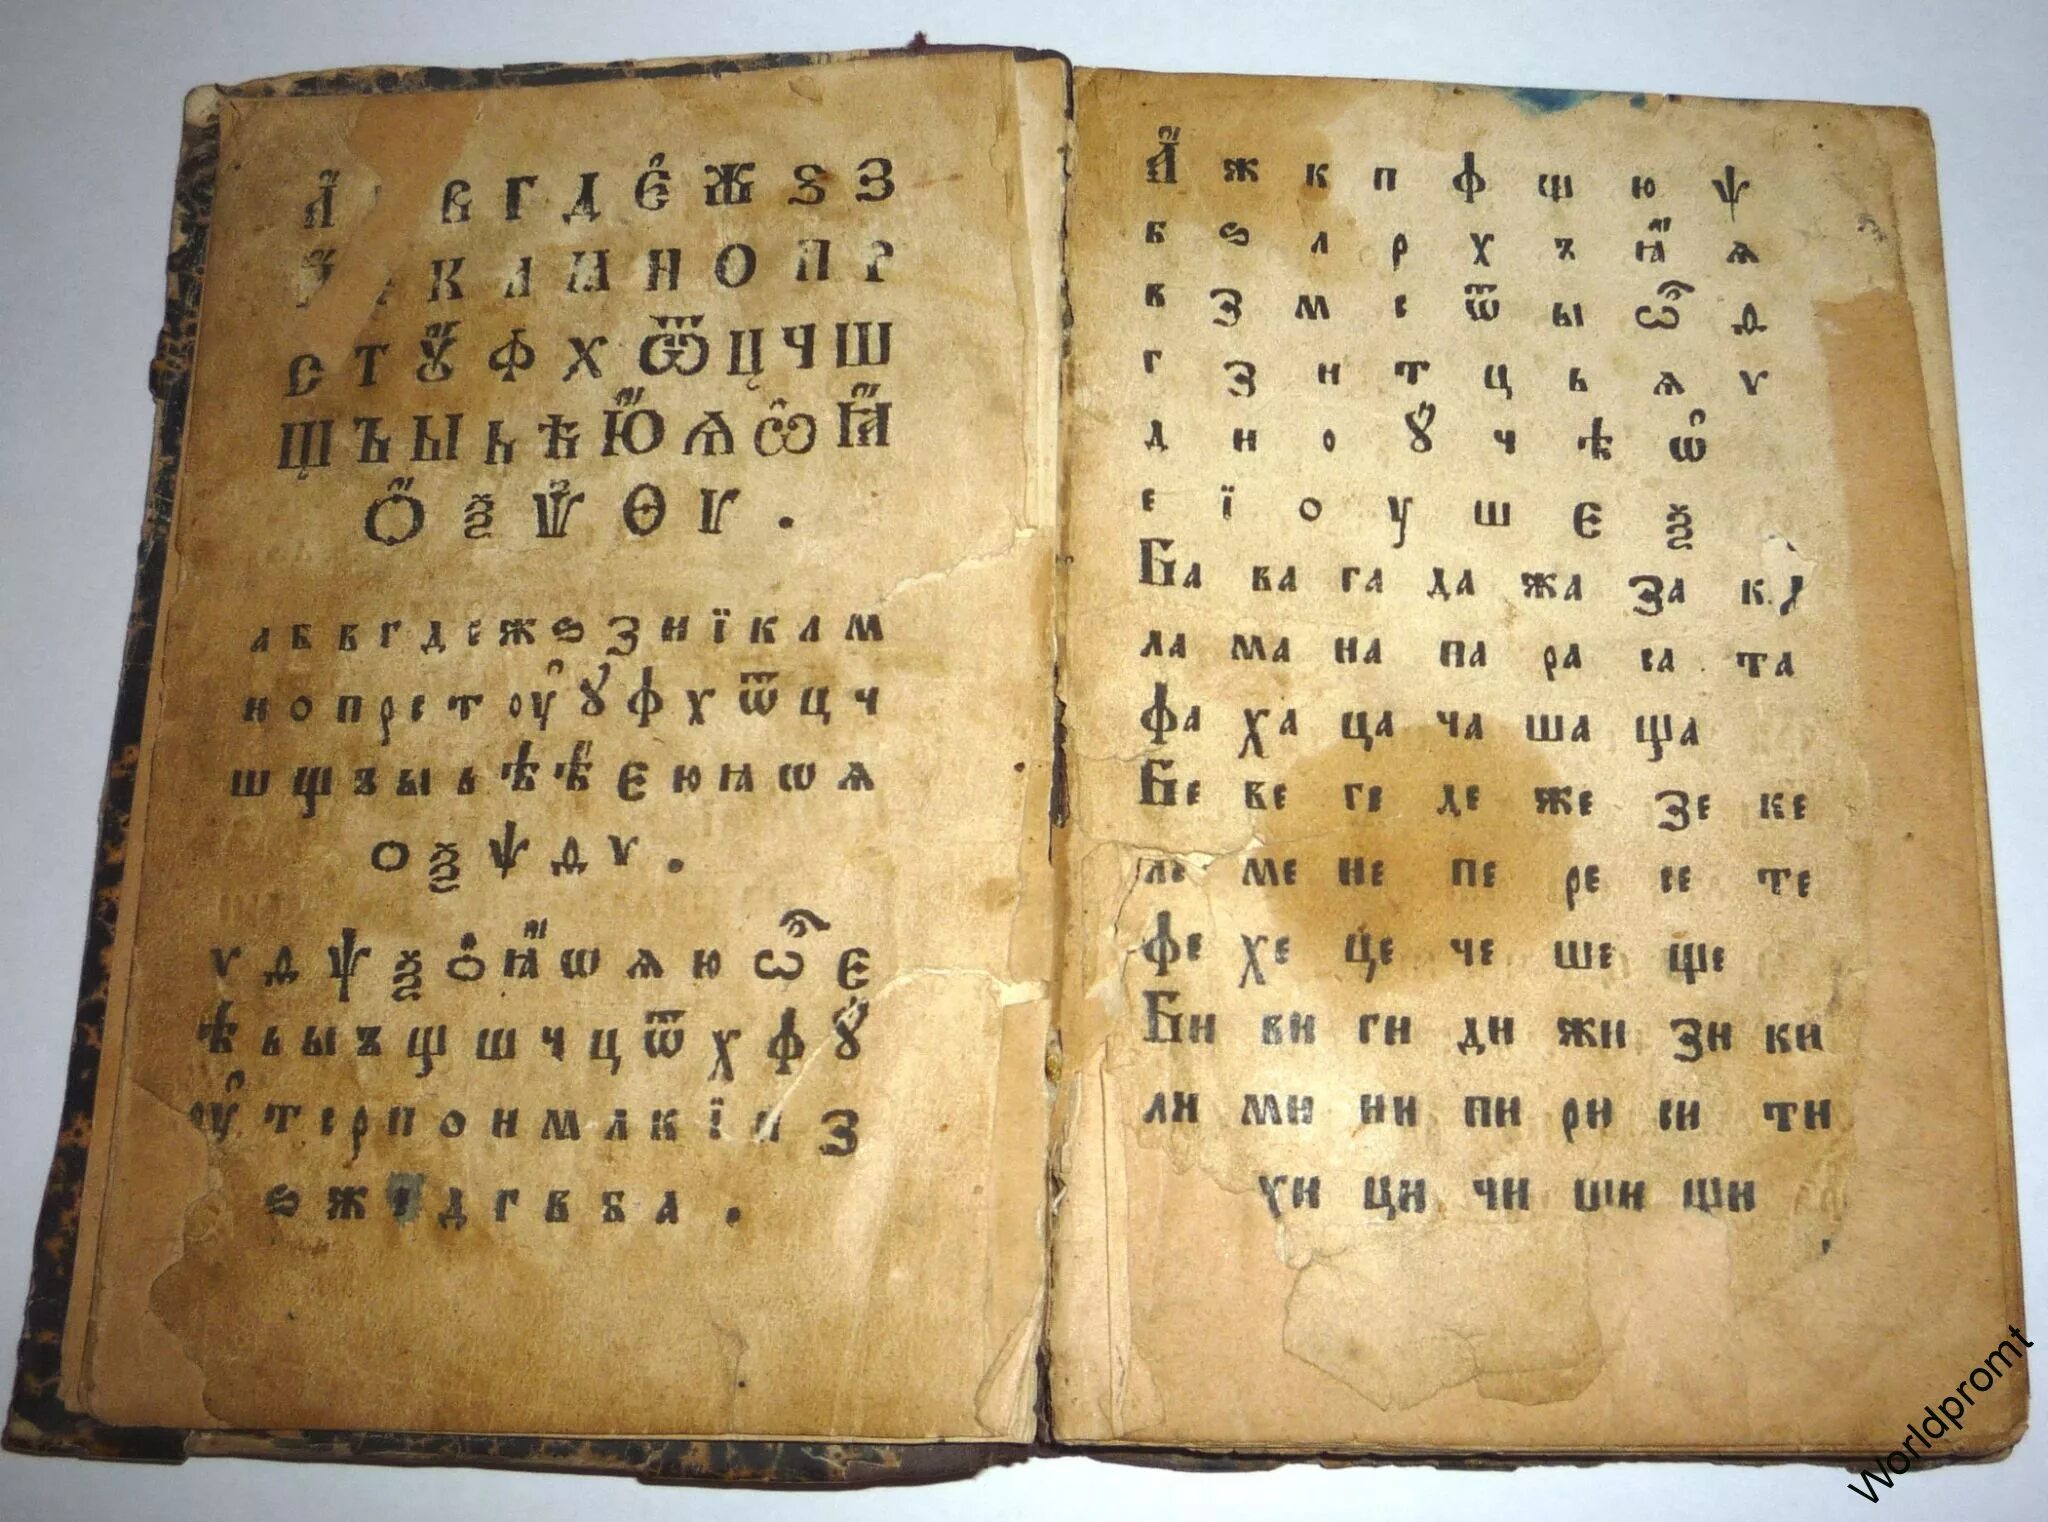 А В Г Д Е Ж Ѕ З
К Л М Н О П Р
С Т Ꙋ Ф Х Ѿ Ц Ч Ш
Щ Ъ Ы Ь Ѣ Ю Ѧ Ѽ Ꙗ
Ѻ Ѯ Ѱ Ѳ Ѵ .
а б в г д е ж ѕ з и ї к л м
н о п р с т оу ꙋ ф х ѿ ц ч
ш щ ъ ы ь ѣ ѣ є ю ꙗ ѡ ѧ
о ѯ ѱ ѳ ѵ .
ѵ ѳ ѱ ѯ ѻ ꙗ ѡ ѧ ю ѽ є
ѣ ь ы ъ щ ш ч ц ѿ х ф ꙋ
оу т с р п о н м л к ї и з
ѕ ж е д г в б а .
А ж к п ф щ ю ѱ
б ѕ л р х ъ ꙗ ѧ
в з м с ѿ ы ѽ ѳ
г з н т ц ь ѧ ѵ
д и о ꙋ ч ѣ ѡ
е ї о у ш є ѯ
Ба ва га да жа за ка
ла ма на па ра са та
фа ха ца ча ша ща
Бе ве ге де же зе ке
ле ме не пе ре се те
фе хе це че ше ще
Би ви ги ди жи зи ки
ли ми ни пи ри си ти
хи ци чи ши щи
Worldpromt